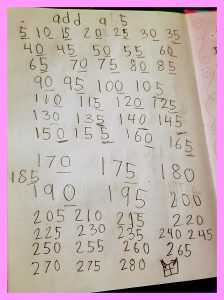 add a 5
5 10 15 20 25 30 35
40 45 50 55 60
65 70 75 80 85
90 95 100 105
110 115 120 125
130 135 140 145
150 155 160 165
170 175 180
185 190 195 200
205 210 215 220
225 230 235 240 245
250 255 260 265
270 275 280